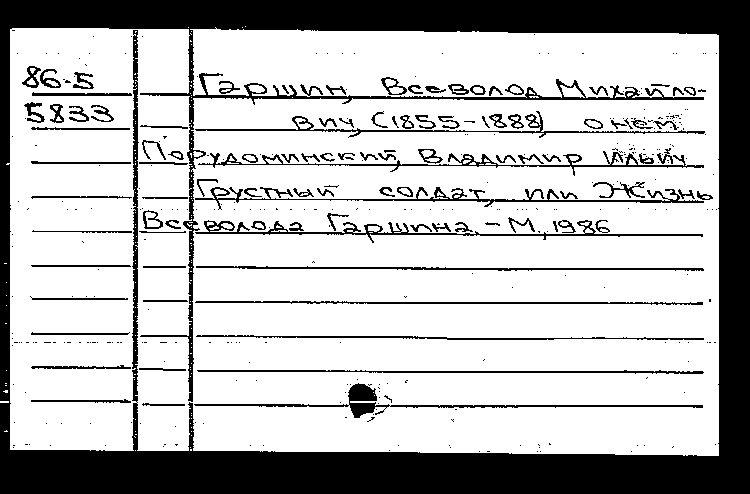 86-5
5833
Гаршин, Всеволод Михайло-
вич, (1855-1888) о нем
Порудоминский, Владимир Ильич
Грустный солдат, или Жизнь
Всеволода Гаршина. - М., 1986